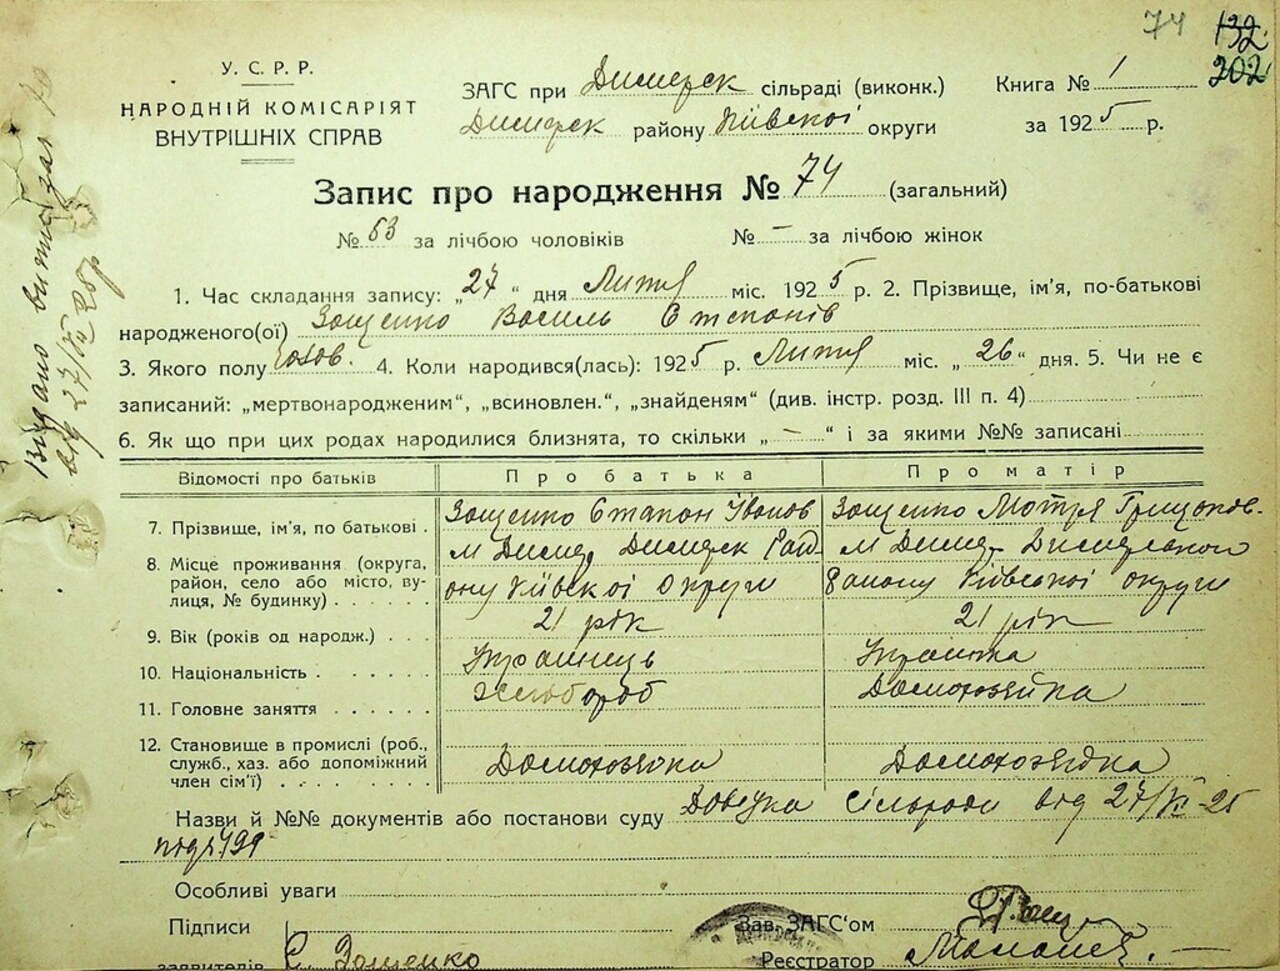 74 132
202
У. С. Р. Р.
НАРОДНІЙ КОМІСАРІЯТ
ВНУТРІШНІХ СПРАВ
ЗАГС при Димерск сільраді (виконк.)
Димерск району Київскої округи
Книга № 1
за 1925 р.
Запис про народження № 74 (загальний)
№ 53 за лічбою чоловіків № – за лічбою жінок
1. Час складання запису: „27“ дня Лютя міс. 1925 р. 2. Прізвище, ім’я, по-батькові
народженого(ої) Зощенко Василь Степанів
3. Якого полу чолов. 4. Коли народився(лась): 1925 р. Лютя міс. „26“ дня. 5. Чи не є
записаний: „мертвонародженим“, „всиновлен.“, „знайденям“ (див. інстр. розд. III п. 4)
6. Як що при цих родах народилися близнята, то скільки „–“ і за якими №№ записані
Відомості про батьків Про батька Про матір
7. Прізвище, ім’я, по батькові . Зощенко Степан Іванов Зощенко Мотря Грицьков.
8. Місце проживання (округа, район, село або місто, вулиця, № будинку) . . . . . .
м Димер, Димерск Рай
ону Київскої Округи
м Димер Димерского
Району Київської округи
9. Вік (років од народж.) . . . 21 рік 21 рік
10. Національність . . . . . . . Українець Українка
11. Головне заняття . . . . . . Хлібороб Домохозяйка
12. Становище в промислі (роб., служб., хаз. або допоміжний член сім’ї) . . . . . . . Домохозяйка Домохозяйка
Назви й №№ документів або постанови суду Довідка Сільради від 27/II-25
под №199
Особливі уваги
Підписи
заявителів С. Зощенко
Зав. ЗАГС‘ом
Реєстратор
Видано витяг за №
від 27/II 25р